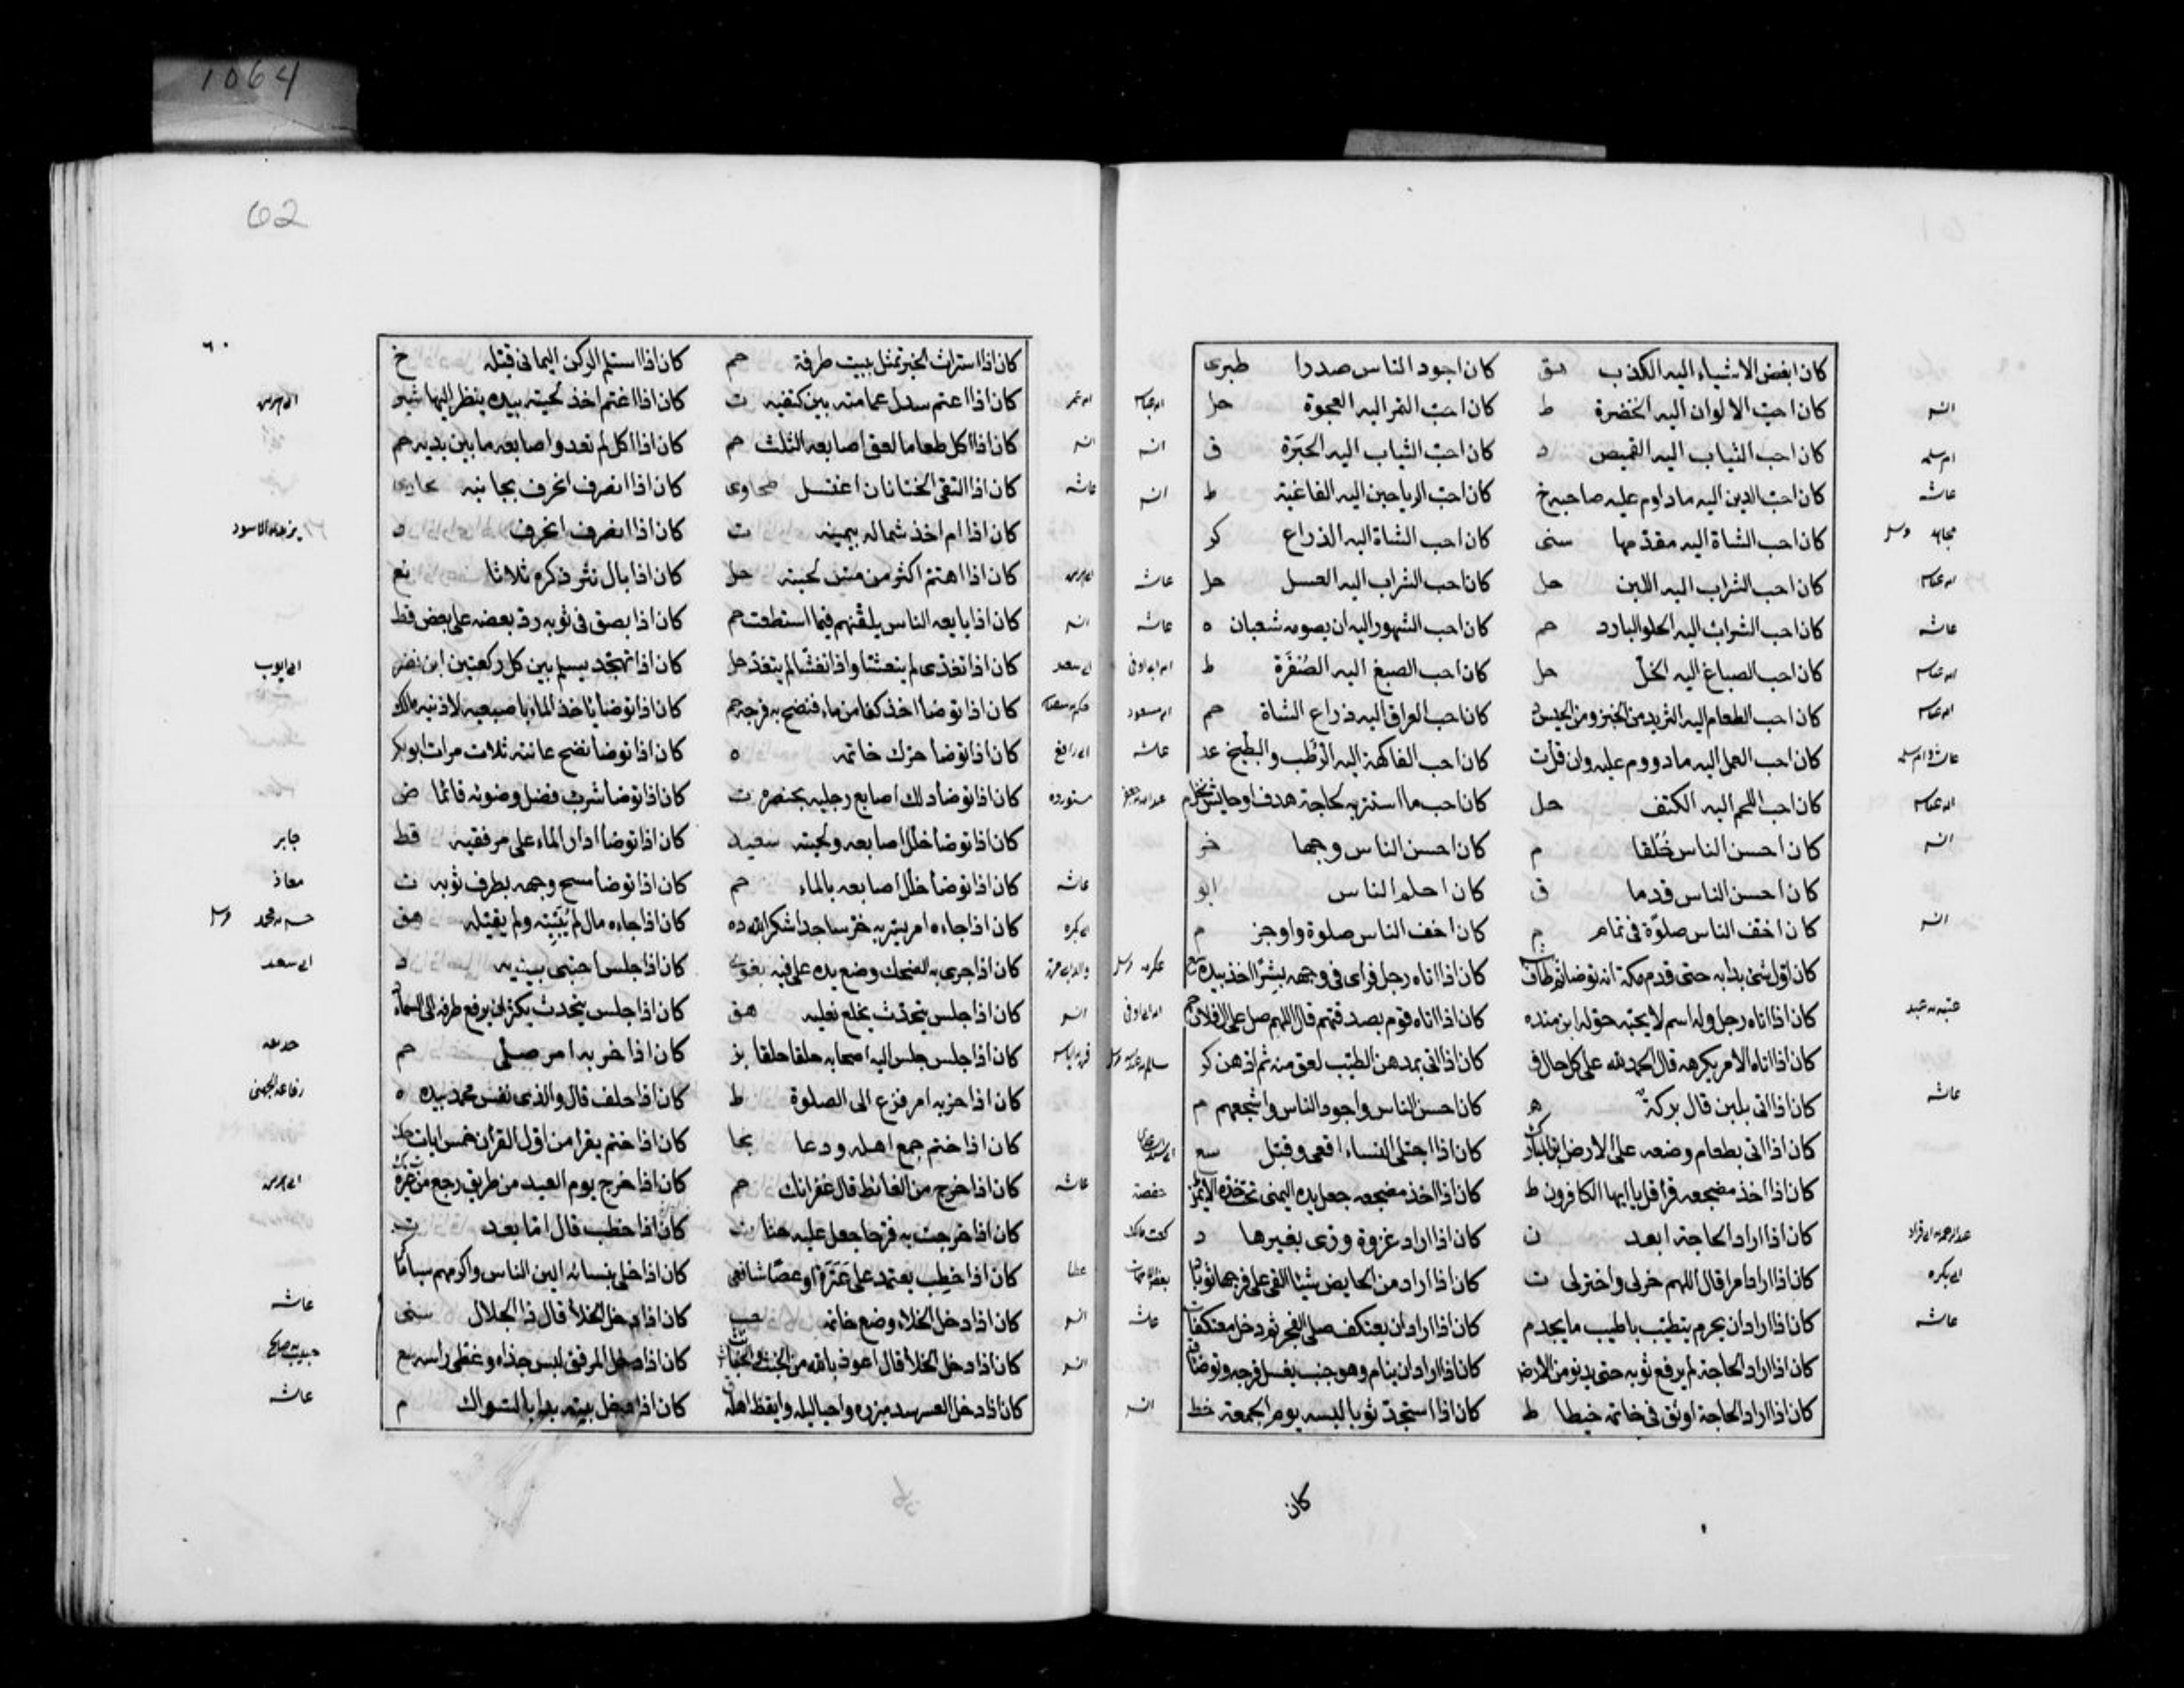 1064
62
٦٠
كان ابغض الاشياء اليه الكذب هق كان اجود الناس صدرا طبرى
انس كان احب الالوان اليه الخضرة ط كان احب التمر اليه العجوة حل
ام سلمه كان احب الثياب اليه القميص د كان احب الثياب اليه الحبرة ق انس
عاشه كان احب الدين اليه ماداوم عليه صاحبه خ كان احب الرياحين اليه الفاغية ط انس
مجاهد كان احب الشاة اليه مقدمها سنى كان احب الشاة اليه الذراع كر
كان احب الشراب اليه اللبن حل كان احب الشراب اليه العسل حل عاشه
عاشه كان احب الشراب اليه الحلو البارد حم كان احب الشهور اليه ان يصومه شعبان ه عاشه
كان احب الصباغ اليه الخل حل كان احب الصبغ اليه الصفرة ط
كان احب الطعام اليه الثريد من الخبز ومن الحيس د كان احب العراق اليه ذراع الشاة حم
كان احب العمل اليه مادووم عليه وان قل ت كان احب الفاكهة اليه الرطب والبطيخ عد عاشه
كان احب اللحم اليه الكتف حل كان احب ما استتر به لحاجة هدف او حايش نخل م
انس كان احسن الناس خلقا م كان احسن الناس وجها
كان احسن الناس قدما ق كان احلم الناس ابو
انس كان اخف الناس صلوة فى تمام م كان اخف الناس صلوة واوجز م
كان اول شئ بدا به حتى قدم مكة انه توضا ثم طاف كان اذا اتاه رجل فراى فى وجهه بشرا اخذ بيده
كان اذا اتاه رجل وله اسم لا يحبه حوله ابن منده كان اذا اتاه قوم بصدقتهم قال اللهم صل على ال فلان حم
كان اذا اتاه الامر يكرهه قال الحمد لله على كل حال ق كان اذا اتى بمدهن الطيب لعق منه ثم ادهن كر
عاشه كان اذا اتى بلبن قال بركة ه كان احسن الناس واجود الناس واشجعهم م
كان اذا اتى بطعام وضعه على الارض كان اذا اجتلى النساء اقعى وقبل سع
كان اذا اخذ مضجعه قرا قل يا ايها الكافرون ط كان اذا اخذ مضجعه جعل يده اليمنى تحت خده الايمن حفصة
كان اذا اراد الحاجة ابعد ن كان اذا اراد غزوة ورى بغيرها د
ابى بكره كان اذا اراد امرا قال اللهم خر لى واختر لى ت كان اذا اراد من الحايض شيئا القى على فرجها ثوبا
عاشه كان اذا اراد ان يحرم يتطيب باطيب ما يجد م كان اذا اراد ان يعتكف صلى الفجر ثم دخل معتكفه عاشه
كان اذا اراد الحاجة لم يرفع ثوبه حتى يدنو من الارض كان اذا اراد ان ينام وهو جنب يغسل فرجه وتوضا
كان اذا اراد الحاجة اوثق فى خاتمه خيطا ط كان اذا استجد ثوبا لبسه يوم الجمعة خط انس
كان
كان اذا استراث الخبر تمثل ببيت طرفة حم كان اذا استلم الركن اليمانى قبله خ
كان اذا اعتم سدل عمامته بين كتفيه ت كان اذا اغتم اخذ لحيته بيده ينظر اليها
انس كان اذا اكل طعاما لعق اصابعه الثلث حم كان اذا اكل لم تعدو اصابعه ما بين يديه حم
عاشه كان اذا التقى الختانان اغتسل طحاوى كان اذا انصرف انحرف بجانبه
كان اذا ام اخذ شماله بيمينه ت كان اذا انصرف انحرف د
كان اذا اهتم اكثر من مس لحيته حل كان اذا بال نثر ذكره ثلاثا نع
انس كان اذا بايعه الناس يلقنهم فيما استطعت حم كان اذا بصق فى ثوبه رد بعضه على بعض قط
كان اذا تغدى لم يتعش واذا تعشى لم يتغد حل كان اذا تهجد يسلم بين كل ركعتين ابن نصر ابى ايوب
كان اذا توضا اخذ كفا من ماء فنضح به فرجه حم كان اذا توضا ياخذ الماء باصبعيه لاذنيه مالك
ابى رافع كان اذا توضا حرك خاتمه ه كان اذا توضا نضح عانته ثلاث مرات ابو بكر
كان اذا توضا دلك اصابع رجليه بخنصره ت كان اذا توضا شرب فضل وضوئه قائما ض
كان اذا توضا خلل اصابعه ولحيته سعيد كان اذا توضا ادار الماء على مرفقيه قط جابر
عاشه كان اذا توضا خلل اصابعه بالماء حم كان اذا توضا مسح وجهه بطرف ثوبه ت معاذ
ابى بكره كان اذا جاءه امر يسر به خر ساجدا شكرا لله ده كان اذا جاءه مال لم يبيته ولم يقيله هق
كان اذا جرى به الضحك وضع يده على فيه بغوى كان اذا جلس احتبى بيديه د ابى سعد
انس كان اذا جلس يتحدث يخلع نعليه هق كان اذا جلس يتحدث يكثر ان يرفع طرفه الى السماء
كان اذا جلس جلس اليه اصحابه حلقا حلقا بز كان اذا حزبه امر صلى حم
كان اذا حزبه امر فزع الى الصلوة ط كان اذا حلف قال والذى نفس محمد بيده ه رفاعه الجهنى
كان اذا ختم جمع اهله ودعا نجا كان اذا ختم يقرا من اول القران خمس ايات
عاشه كان اذا خرج من الغائط قال غفرانك حم كان اذا خرج يوم العيد من طريق رجع من غيره
كان اذا خرجت به قرحا جعل عليه حنا ت كان اذا خطب قال اما بعد
عطا كان اذا خطب يعتمد على عنزة او عصا شافعى كان اذا خلى بنسائه الين الناس واكرمهم بساما
انس كان اذا دخل الخلاء وضع خاتمه حب كان اذا دخل الخلا قال ذا الجلال سنى عاشه
انس كان اذا دخل الخلا قال اعوذ بالله من الخبث والخبائث كان اذا دخل المرفق لبس حذاه وغطى راسه سع
كان اذا دخل العشر شد ميزره واحيا ليله وايقظ اهله كان اذا دخل بيته بدا بالسواك م عاشه